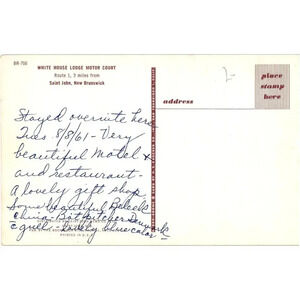 BR-700
WHITE HOUSE LODGE MOTOR COURT
Route 1, 3 miles from
Saint John, New Brunswick
2-
place
stamp
here
address
Stayed overnite here
Tues. 8/8/61 - Very
beautiful Motel &
and restaurant -
a lovely gift shop
Some beautiful
China - Denmark
lovely blue color
PRINTED IN U.S.A.